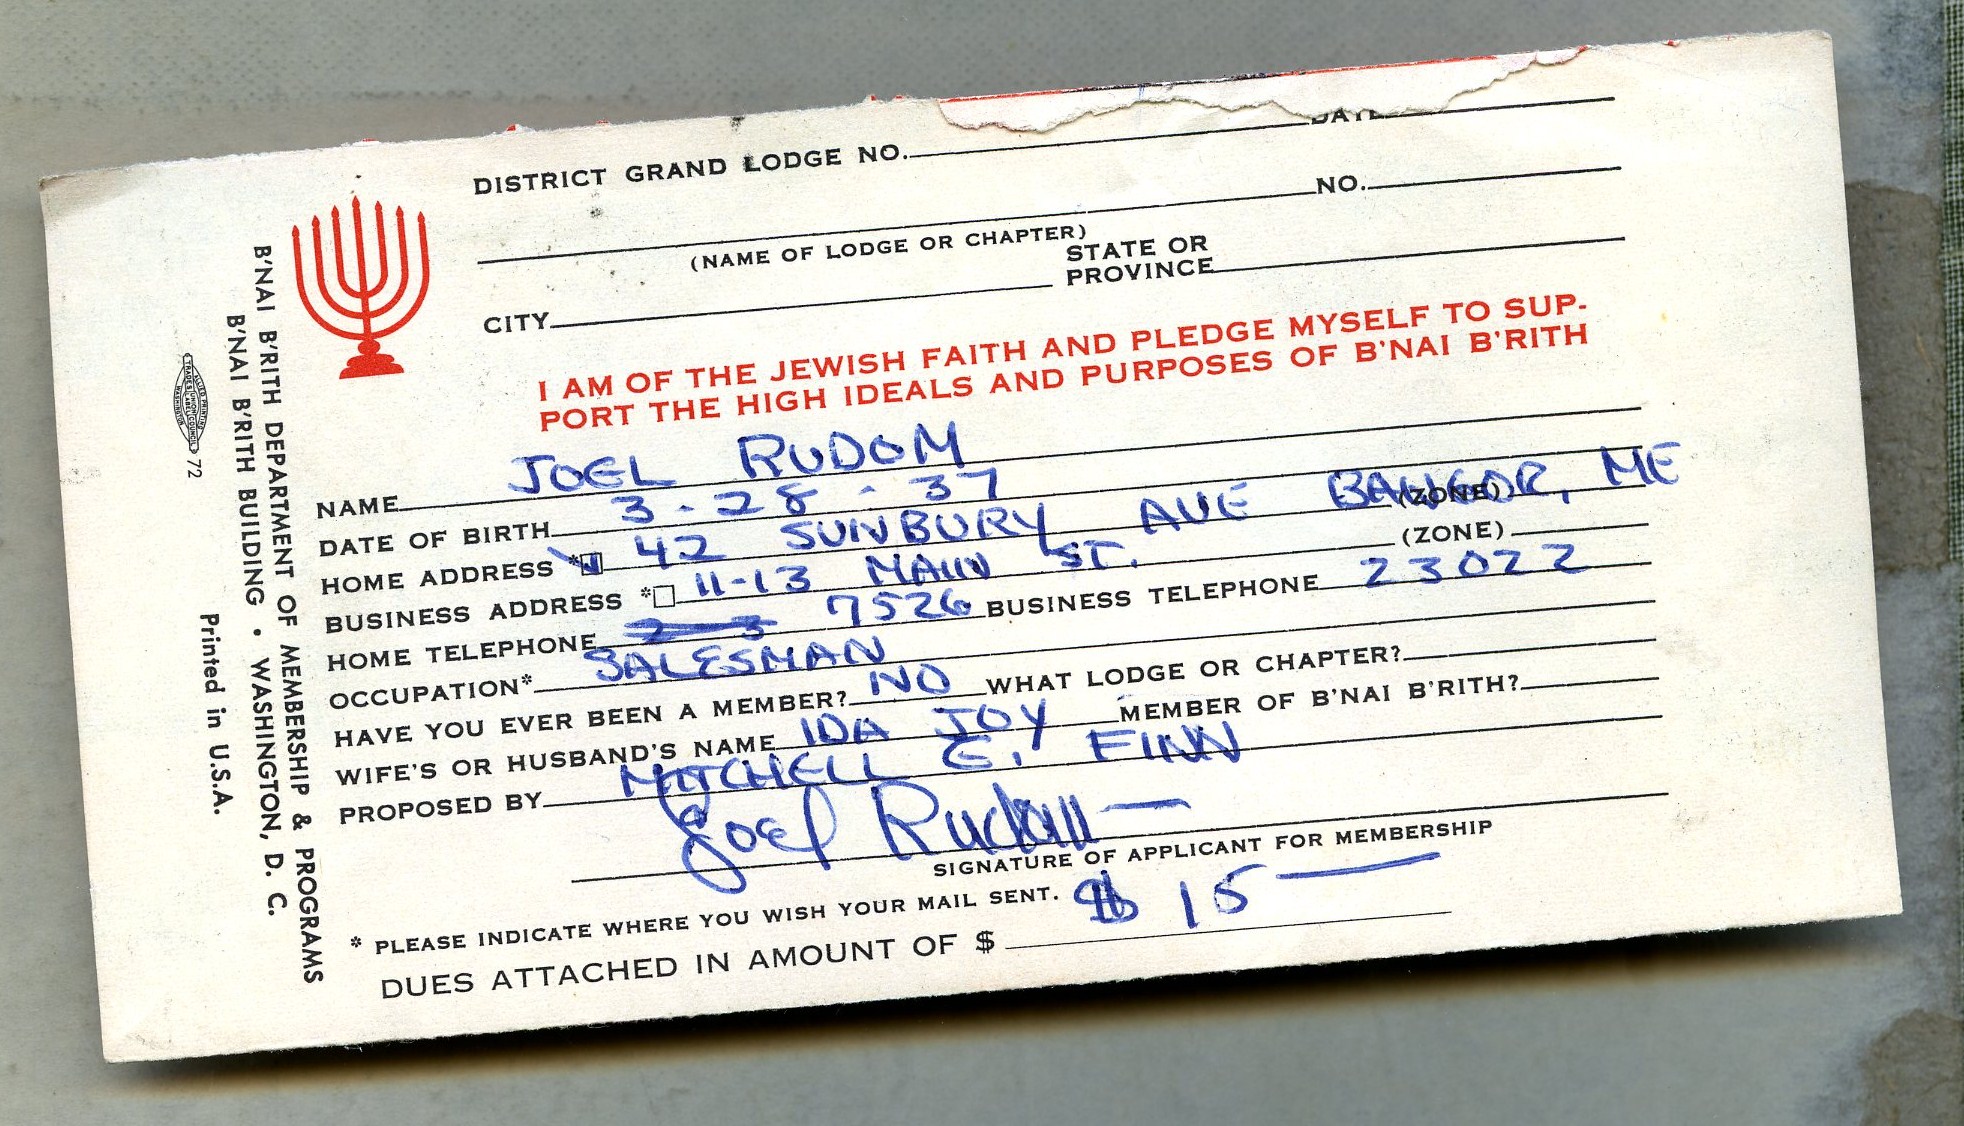 DATE
DISTRICT GRAND LODGE NO.
NO.
(NAME OF LODGE OR CHAPTER)
CITY STATE OR PROVINCE
I AM OF THE JEWISH FAITH AND PLEDGE MYSELF TO SUP-
PORT THE HIGH IDEALS AND PURPOSES OF B'NAI B'RITH
NAME JOEL RUDOM
DATE OF BIRTH 3-28-37
HOME ADDRESS * 42 SUNBURY AVE BANGOR, ME (ZONE)
BUSINESS ADDRESS * 11-13 MAIN ST. (ZONE)
HOME TELEPHONE 7526 BUSINESS TELEPHONE 23022
OCCUPATION* SALESMAN
HAVE YOU EVER BEEN A MEMBER? NO WHAT LODGE OR CHAPTER?
WIFE'S OR HUSBAND'S NAME IDA JOY MEMBER OF B'NAI B'RITH?
PROPOSED BY MITCHELL E. FINN
Joel Rudom
SIGNATURE OF APPLICANT FOR MEMBERSHIP
* PLEASE INDICATE WHERE YOU WISH YOUR MAIL SENT.
DUES ATTACHED IN AMOUNT OF $ $ 15
B'NAI B'RITH DEPARTMENT OF MEMBERSHIP & PROGRAMS
B'NAI B'RITH BUILDING • WASHINGTON, D. C.
ALLIED PRINTING
TRADES UNION LABEL COUNCIL
WASHINGTON
72
Printed in U.S.A.